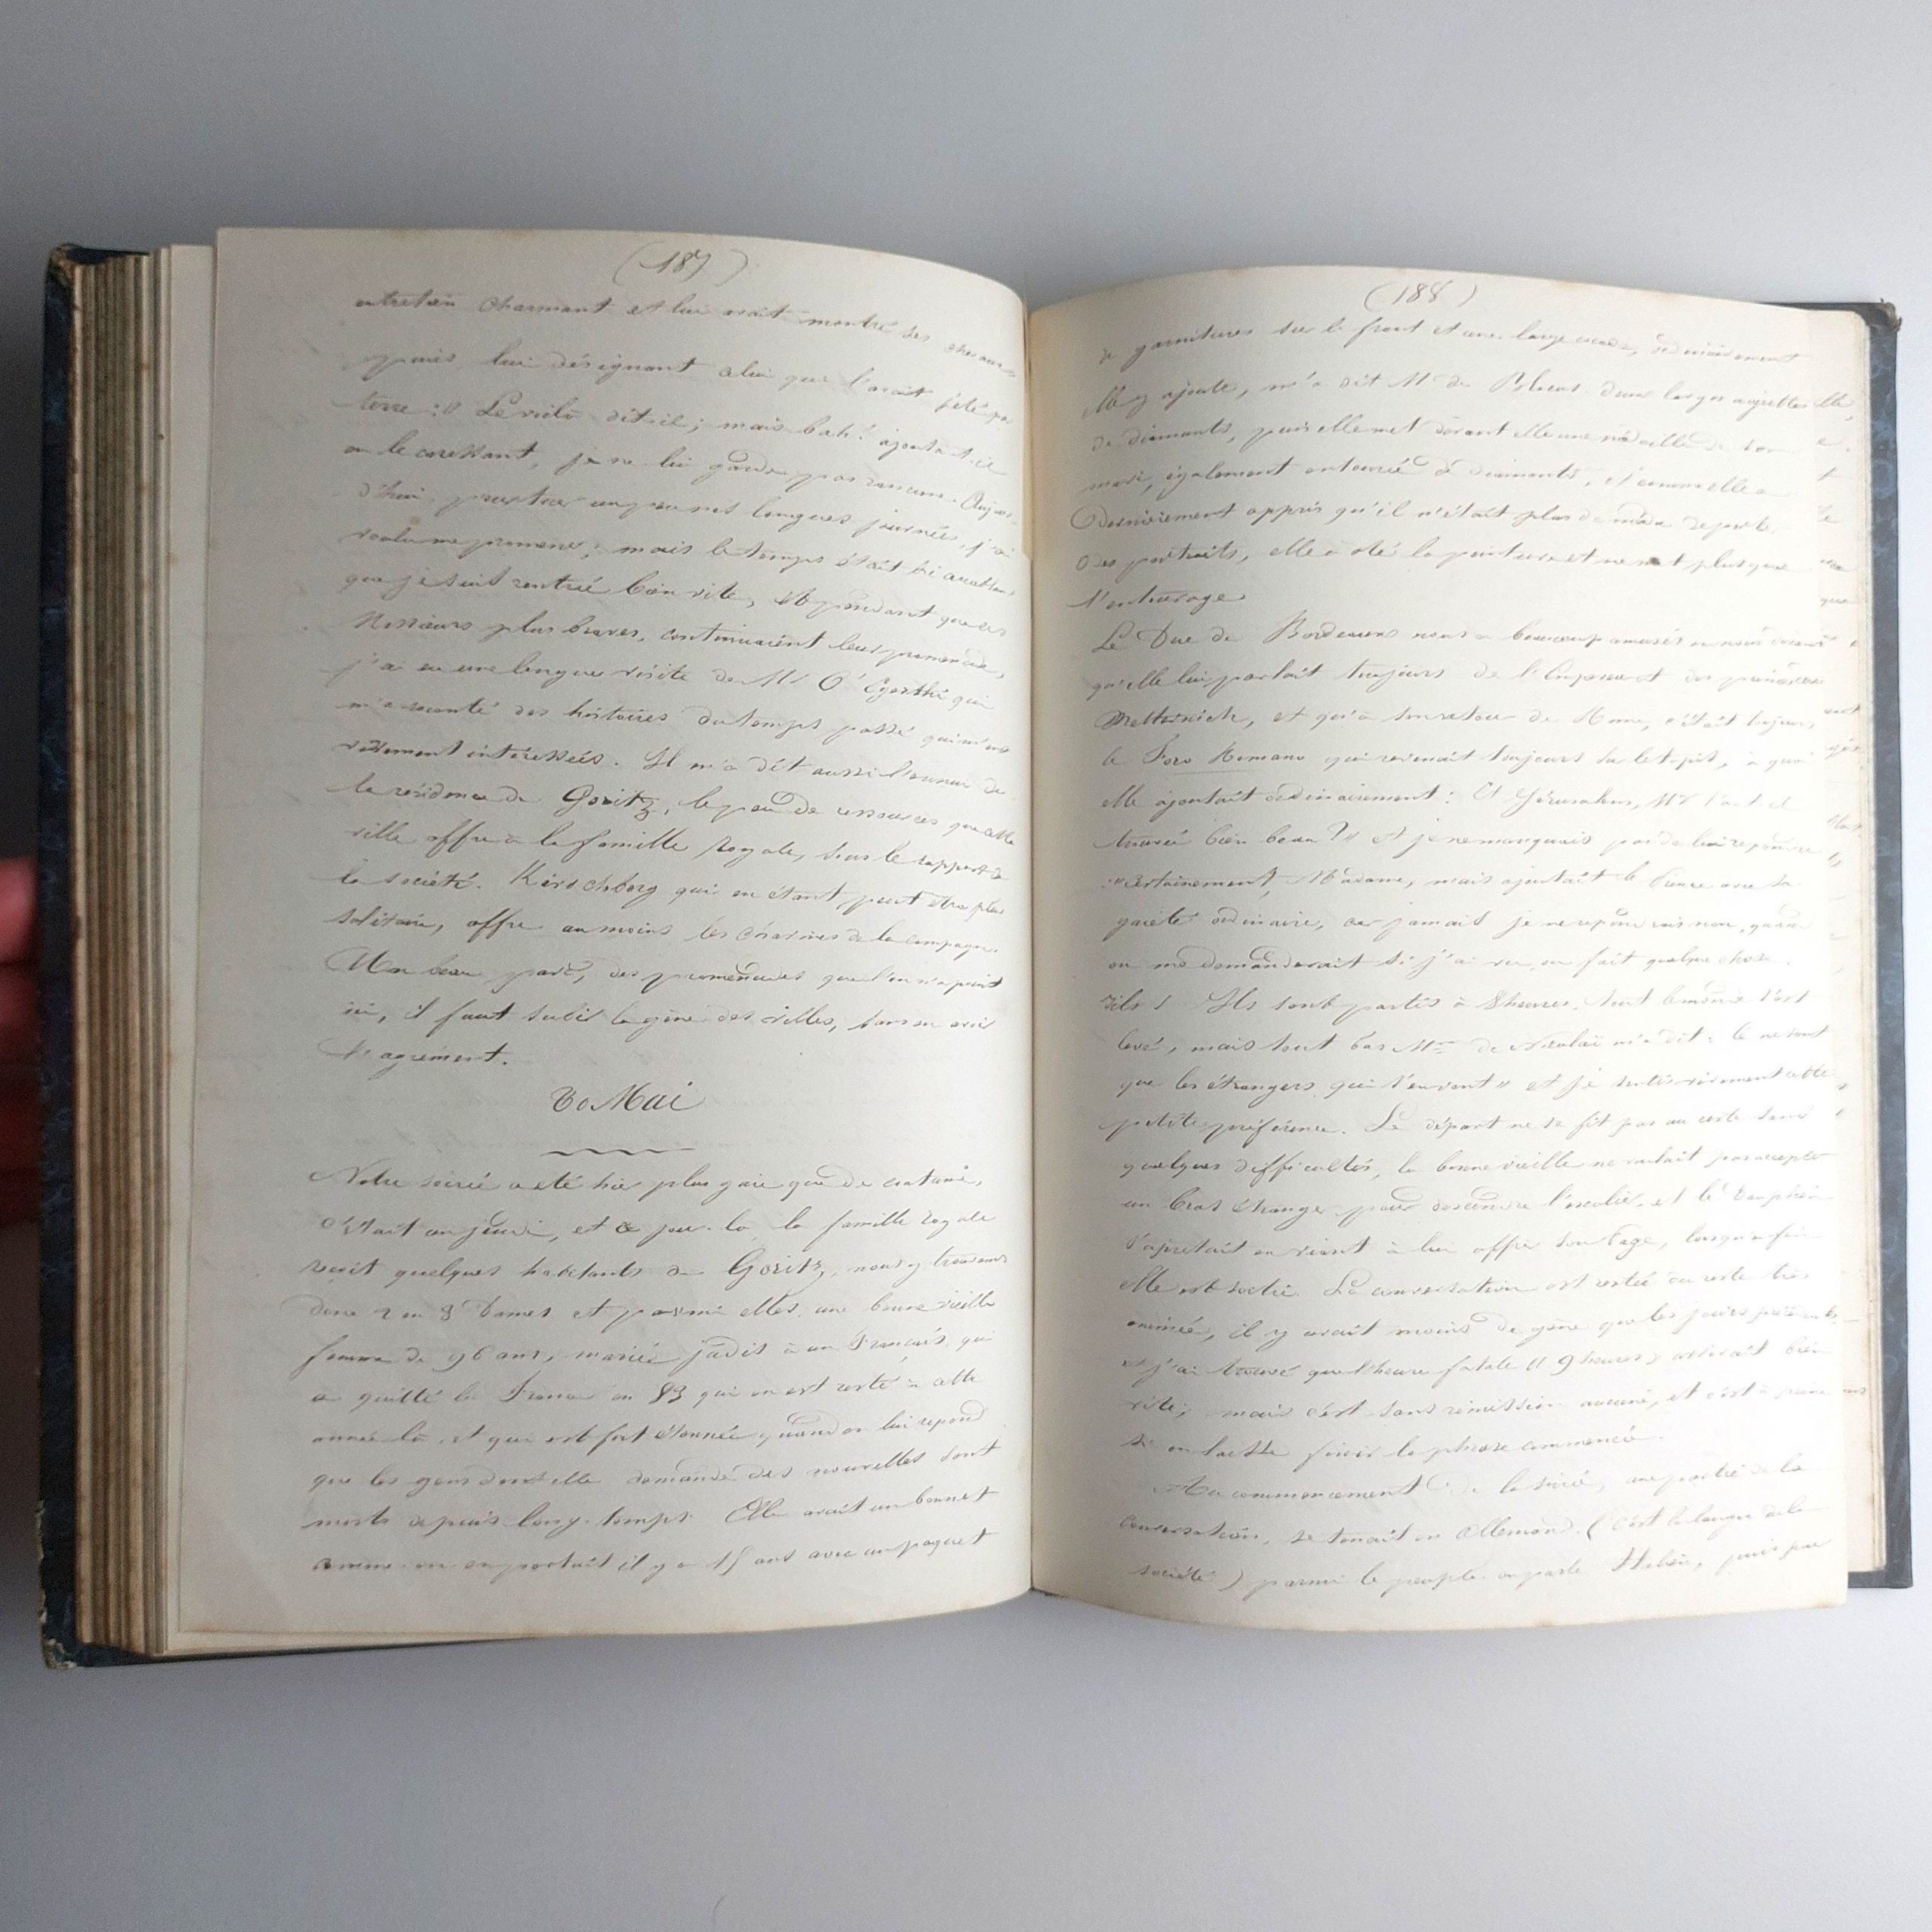 (187)
entretien charmant et lui avait montré ses chevaux
puis lui désignant celui qui l'avait jeté par
terre : " Le voilà dit-il ; mais bah ! ajouta-t-il
en le caressant, je ne lui garde pas rancune. Aujour-
d'hui, pour tuer un peu nos longues journées, j'ai
voulu me promener ; mais le temps était si accablant
que je suis rentrée bien vite, et pendant que ces
Messieurs plus braves, continuaient leur promenade,
j'ai eu une longue visite de Mr O'Egerthi qui
m'a raconté des histoires du temps passé qui m'ont
vivement intéressées. Il m'a dit aussi l'ennui de
la résidence de Goritz, le peu de ressources que cette
ville offre à la famille royale, sous le rapport de
la société. Kirschberg qui en étant peut être plus
solitaire, offre au moins les charmes de la campagne.
Un beau parc, des promenades que l'on n'a point
ici, il faut subir la gêne des villes, sans en avoir
l'agrément.
Mai
Notre soirée a été hier plus gaie que de coutume,
C'était un jeudi, et ce jour-là la famille royale
reçoit quelques habitants de Goritz, nous y trouvâmes
donc 7 ou 8 Dames et parmi elles, une bonne vieille
femme de 96 ans, mariée jadis à un Français, qui
a quitté la France en 83 qui en est resté à cette
année là, et qui est fort étonnée quand on lui repond
que les gens dont elle demande des nouvelles sont
morts depuis long-temps. Elle avait un bonnet
comme on en portait il y a 15 ans avec un paquet
(188)
de garnitures sur le front et une large
Elle y ajoute, m'a dit Mr de Blacas deux larges aigrettes
de diamants, puis elle met devant elle une médaille de son
mari, également entourée de diamants, et comme elle a
Dernièrement appris qu'il n'était plus de mode de porter
des portraits, elle a oté la peinture et ne met plus que
l'entourage
Le Duc de Bordeaux nous a beaucoup amusés en nous disant
qu'elle lui parlait toujours de l'Empereur et des princesses
Metternich, et qu'à son retour de Rome, c'était toujours
le Foro Romano qui revenait toujours sur le tapis, à quoi
elle ajoutait ordinairement : Et Jérusalem, Mr l'a-t-il
trouvé bien beau ? " et je ne manquais pas de lui repondre
: " Certainement, Madame, mais ajoutait le Prince avec sa
gaieté ordinaire, car jamais je ne repondrais non, quand
on me demanderait si j'ai vu, ou fait quelque chose.
Ils sont partis à 8 heures, tout le monde s'est
levé, mais tout bas Mme de Nicolaï m'a dit : Ce ne sont
que les étrangers qui s'en vont " et je sentis vivement cette
petite préférence. Le départ ne se fit pas au reste sans
quelques difficultés, la bonne vieille ne voulait pas accepter
un bras étranger pour descendre l'escalier, et le Dauphin
s'apretait en riant à lui offrir son Page, lorsqu'enfin
elle est sortie. La conversation est restée au reste très
animée, il y avait moins de gêne que les jours précédents,
et j'ai trouvé que l'heure fatale (9 heures) arrivait bien
vite ; mais c'est sans rémission aucune, et c'est à peine
si on laisse finir la phrase commencée.
Au commencement de la soirée, une partie de la
conversation, se tenait en Allemand. (C'est la langue de la
société) parmi le peuple on parle Italien, puis par